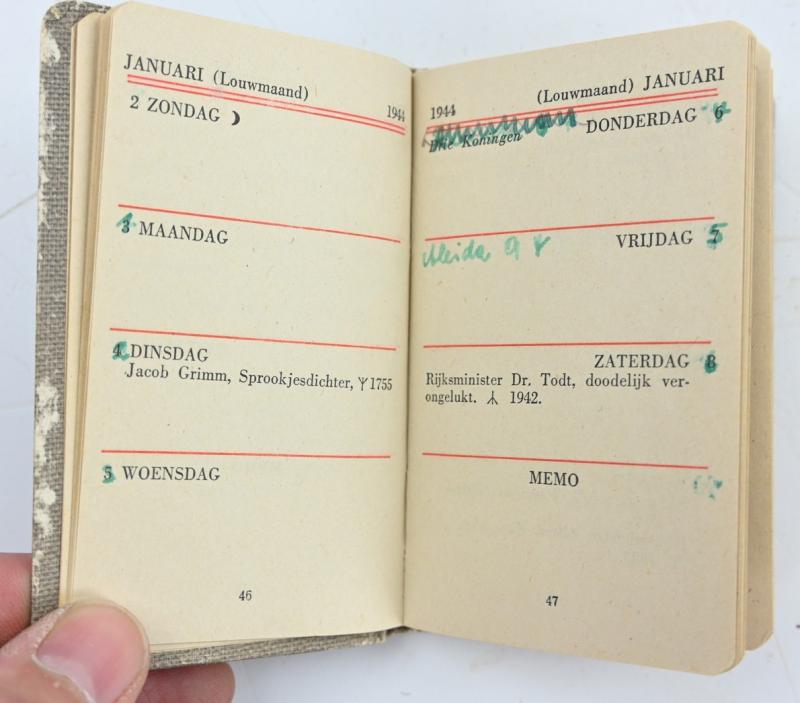 JANUARI (Louwmaand)
1944
2 ZONDAG ☽
3 MAANDAG
4 DINSDAG
Jacob Grimm, Sprookjesdichter, ᛉ 1755
5 WOENSDAG
46
(Louwmaand) JANUARI
1944
DONDERDAG 6
Drie Koningen
VRIJDAG 7
Aleida 9 ᛉ
ZATERDAG 8
Rijksminister Dr. Todt, doodelijk ver-
ongelukt. ᛣ 1942.
MEMO
47